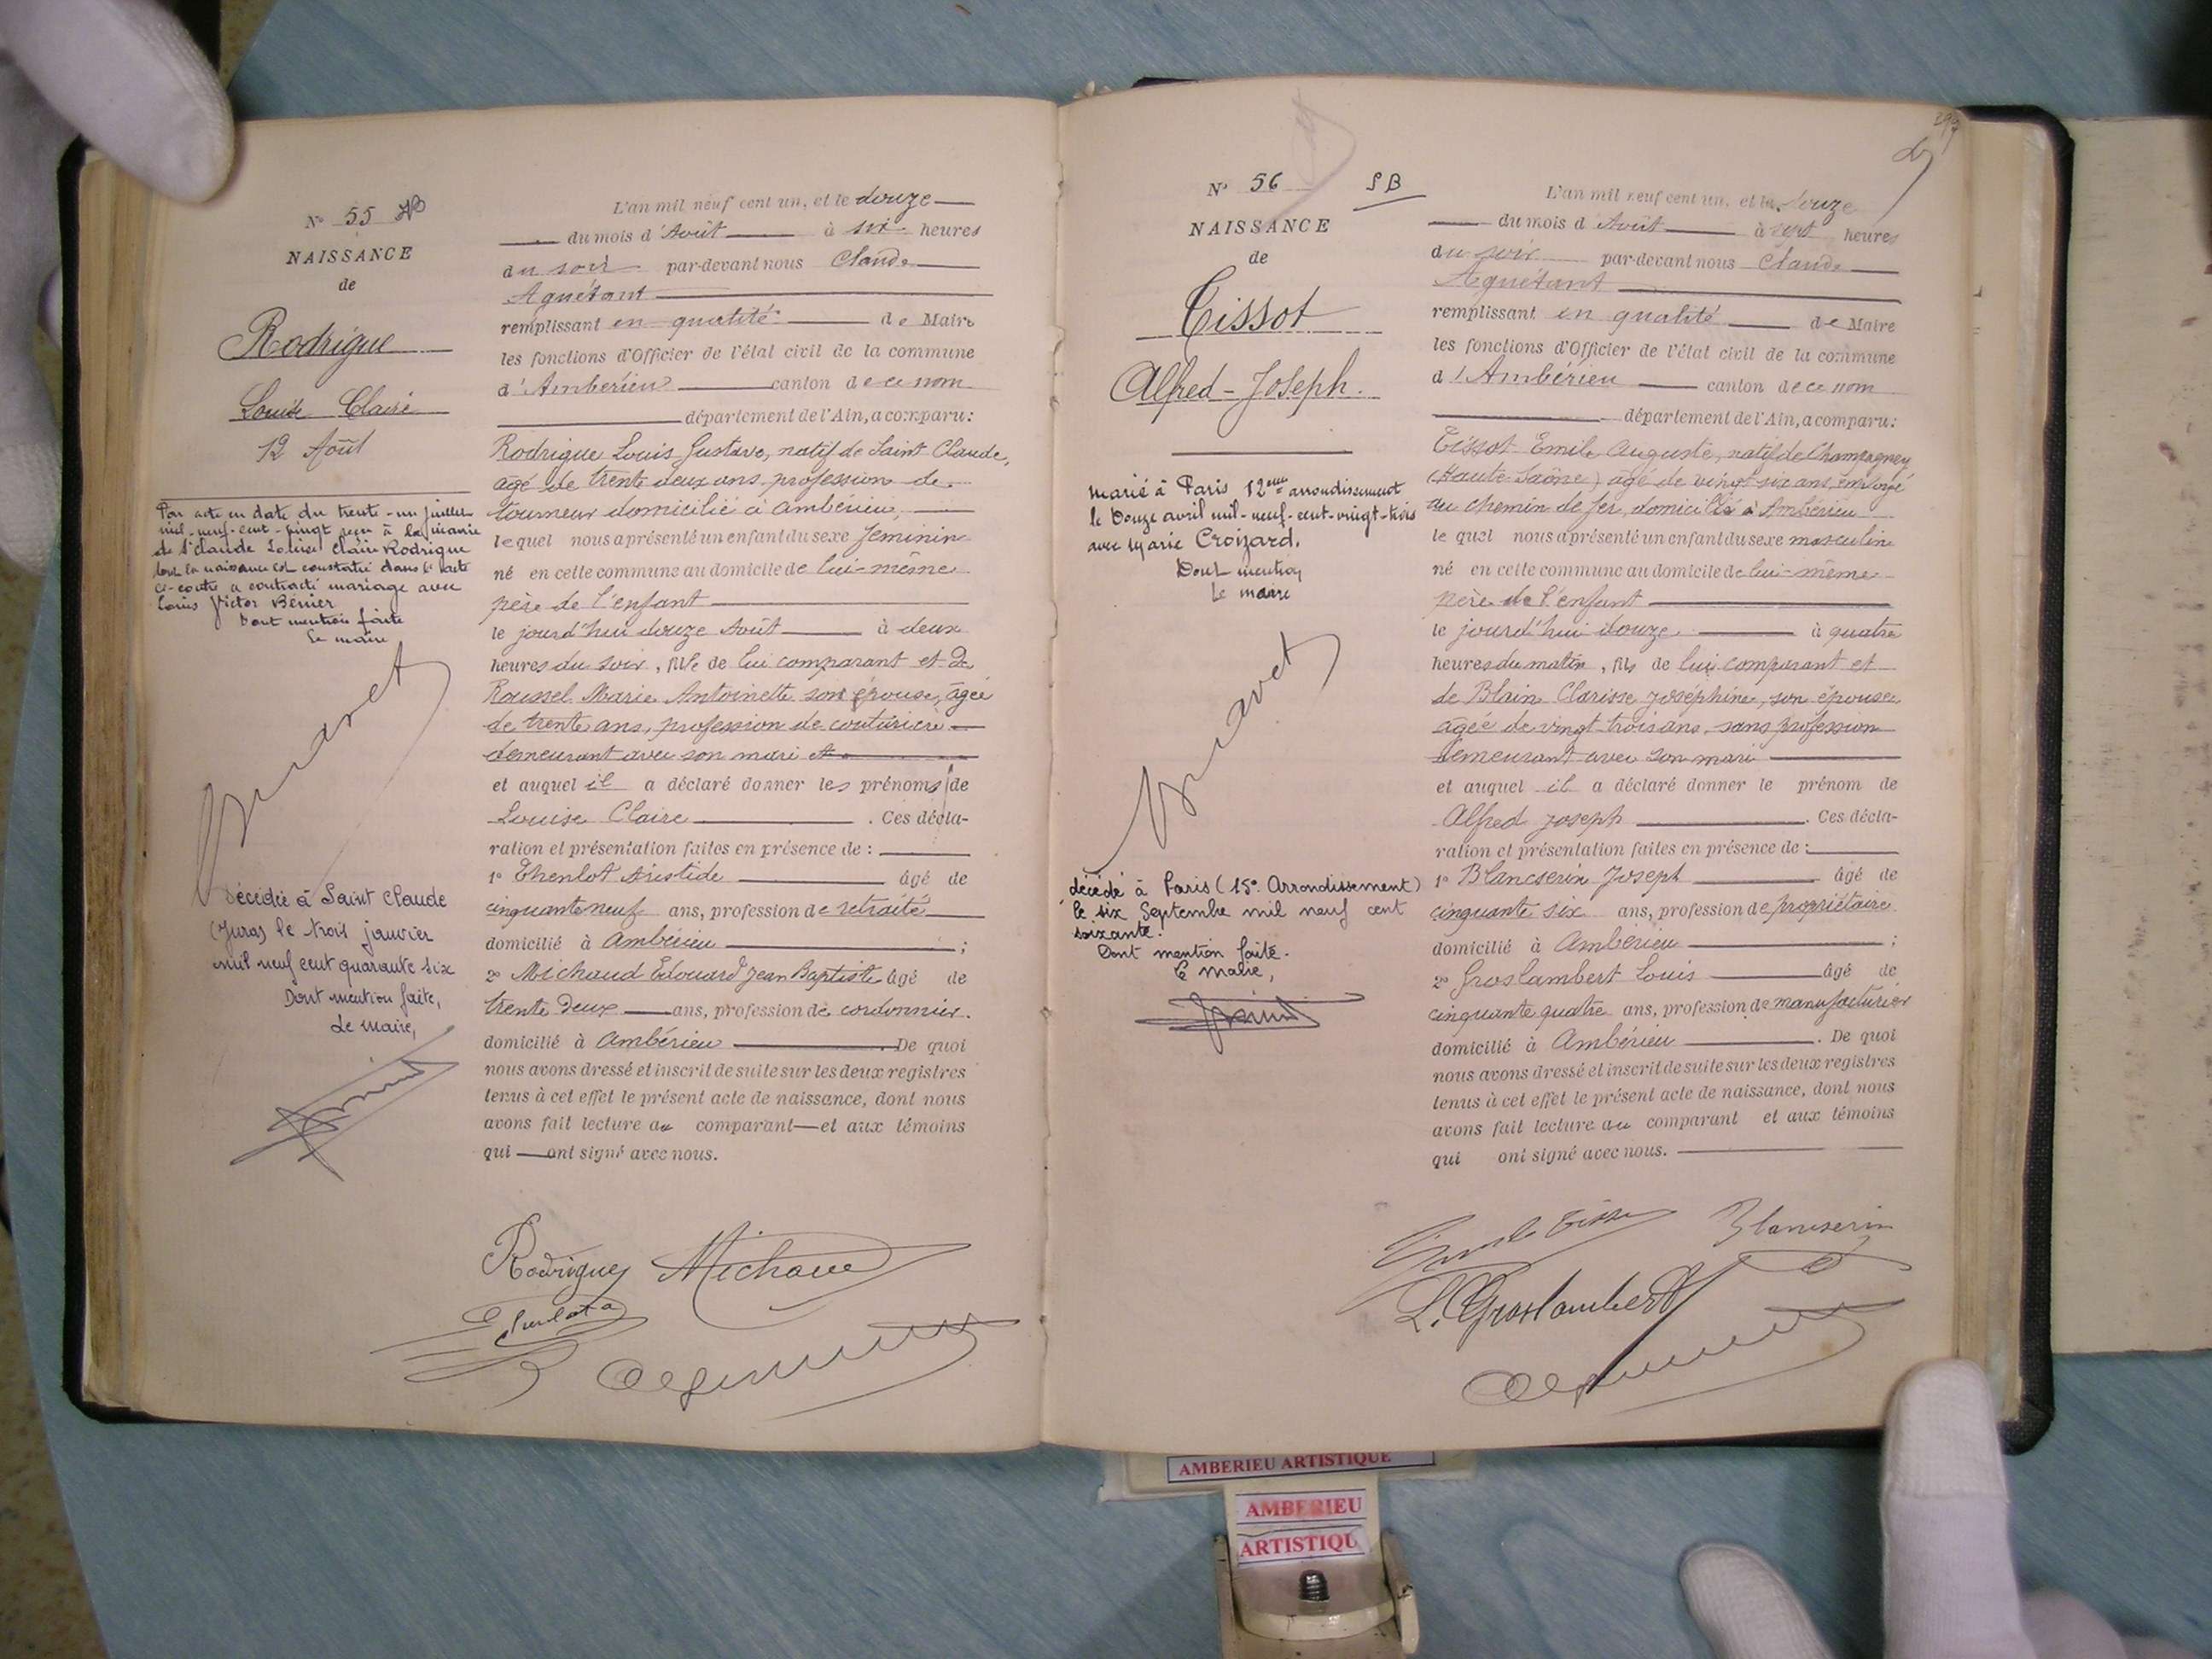 N° 55
NAISSANCE
de
Rodrigue
Louise Claire
12 Août
Par acte en date du trente-un juillet
mil-neuf-cent-vingt reçu à la mairie
de St Claude Louise Claire Rodrigue
dont la naissance est constatée dans l'acte
ci-contre a contracté mariage avec
Louis Victor Bénier
Dont mention faite
Le maire
Décédée à Saint Claude
(Jura) le trois janvier
mil neuf cent quarante six
Dont mention faite,
Le maire,
L'an mil neuf cent un, et le douze
du mois d'Août à six heures
du soir par-devant nous Claude
Aguétant
remplissant en qualité de Maire
les fonctions d'Officier de l'état civil de la commune
d'Ambérieu canton de ce nom
département de l'Ain, a comparu:
Rodrigue Louis Gustave, natif de Saint Claude,
âgé de trente deux ans profession de
tourneur domicilié à Ambérieu,
lequel nous a présenté un enfant du sexe féminin
né en cette commune au domicile de lui-même
père de l'enfant
le jourd'hui douze Août à deux
heures du soir, fille de lui comparant et de
Roussel Marie Antoinette son épouse, âgée
de trente ans, profession de couturière
demeurant avec son mari
et auquel il a déclaré donner les prénoms de
Louise Claire. Ces décla-
ration et présentation faites en présence de :
1° Thenlot Aristide âgé de
cinquante neuf ans, profession de retraité
domicilié à Ambérieu ;
2° Michaud Edouard Jean Baptiste âgé de
trente deux ans, profession de cordonnier.
domicilié à Ambérieu. De quoi
nous avons dressé et inscrit de suite sur les deux registres
tenus à cet effet le présent acte de naissance, dont nous
avons fait lecture au comparant et aux témoins
qui ont signé avec nous.
Rodrigue Michaud
N° 56 SB
NAISSANCE
de
Tissot
Alfred-Joseph.
Marié à Paris 12eme arrondissement
le Douze avril mil-neuf-cent-vingt-trois
avec Marie Croizard.
Dont mention
Le maire
décédé à Paris (15e Arrondissement)
le six Septembre mil neuf cent
soixante.
Dont mention faite.
Le Maire,
L'an mil neuf cent un, et le douze
du mois d'Août à sept heures
du soir par-devant nous Claude
Aguétant
remplissant en qualité de Maire
les fonctions d'Officier de l'état civil de la commune
d'Ambérieu canton de ce nom
département de l'Ain, a comparu:
Tissot Emile Auguste, natif de Champagney
(Haute-Saône) âgé de vingt six ans, employé
au chemin de fer, domicilié à Ambérieu
lequel nous a présenté un enfant du sexe masculin
né en cette commune au domicile de lui-même
père de l'enfant
le jourd'hui douze à quatre
heures du matin, fils de lui comparant et
de Blain Clarisse Joséphine, son épouse
âgée de vingt trois ans, sans profession
demeurant avec son mari
et auquel il a déclaré donner le prénom de
Alfred Joseph. Ces décla-
ration et présentation faites en présence de :
1° Blancserin Joseph âgé de
cinquante six ans, profession de propriétaire
domicilié à Ambérieu ;
2° Groslambert Louis âgé de
cinquante quatre ans, profession de manufacturier
domicilié à Ambérieu. De quoi
nous avons dressé et inscrit de suite sur les deux registres
tenus à cet effet le présent acte de naissance, dont nous
avons fait lecture au comparant et aux témoins
qui ont signé avec nous.
Blancserin
L. Groslambert
AMBERIEU ARTISTIQUE
AMBERIEU
ARTISTIQU